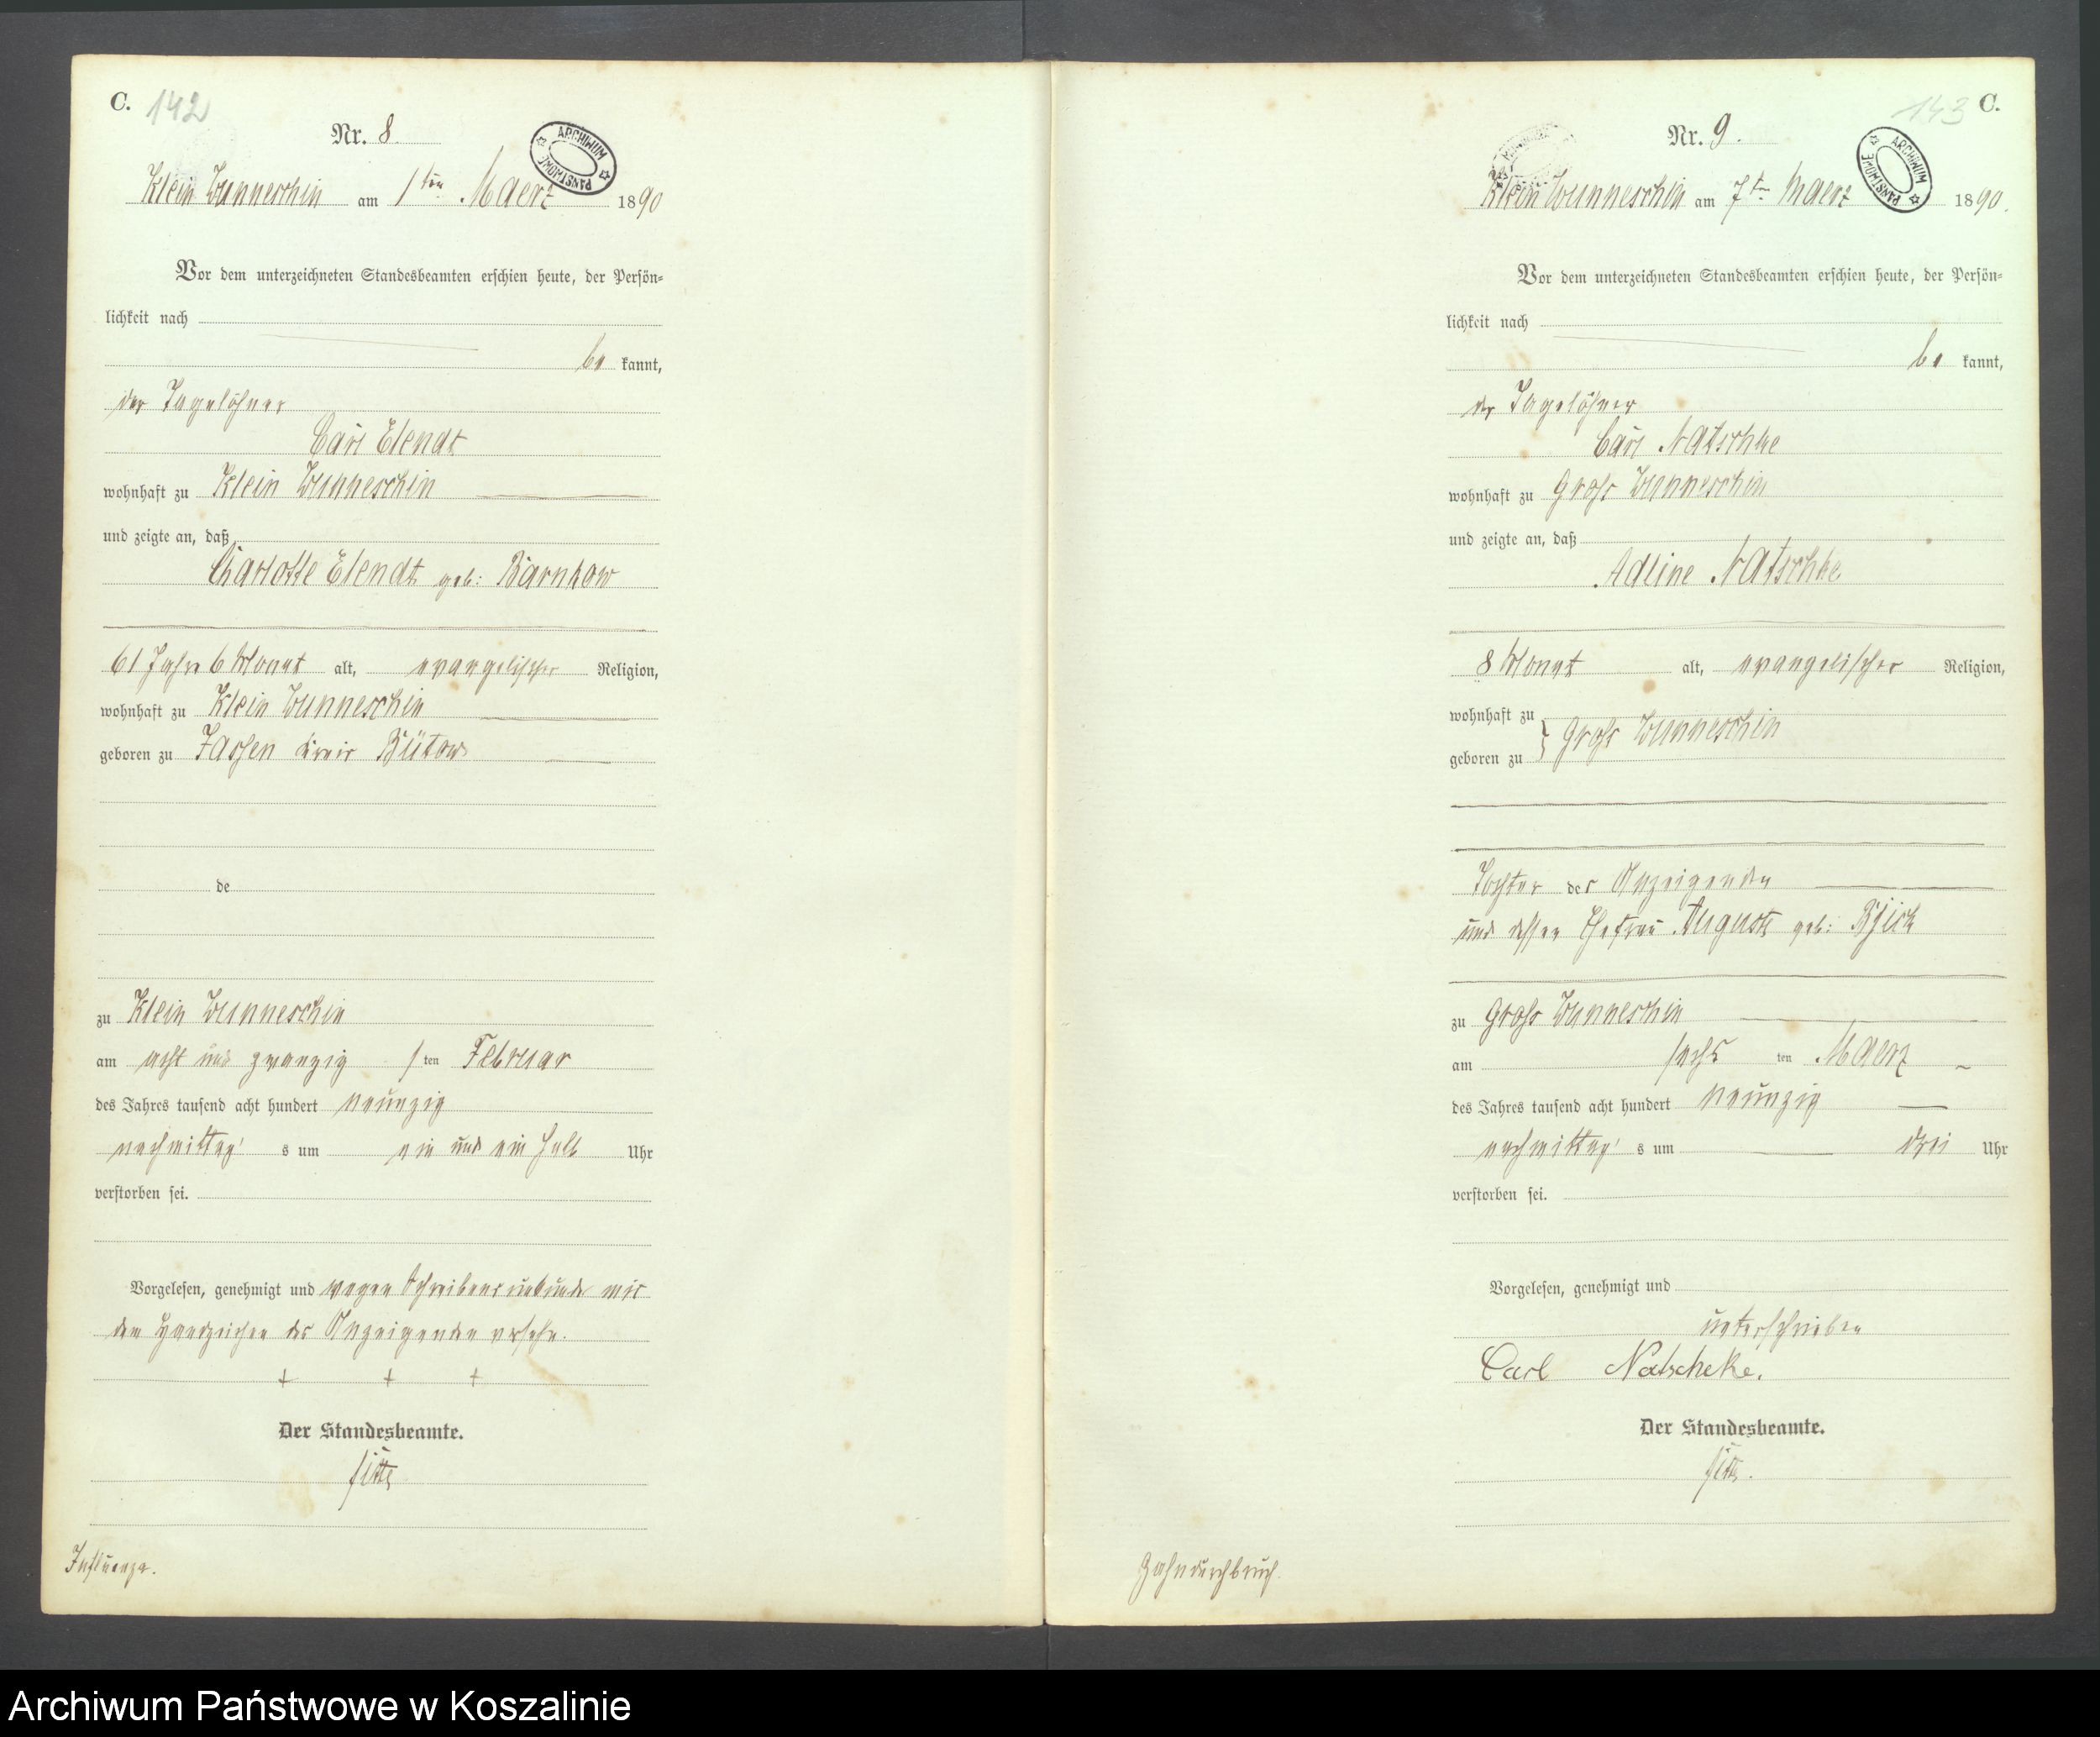 C. 142
Nr. 8.
ARCHIWUM PAŃSTWOWE
Klein Wunneschin am 1ten Maerz 1890
Vor dem unterzeichneten Standesbeamten erschien heute, der Persön=
lichkeit nach
be kannt,
der Tagelöhner
Carl Elendt
wohnhaft zu Klein Wunneschin
und zeigte an, daß
Charlotte Elendt geb: Barnkow
61 Jahre 6 Monat alt, evangelischer Religion,
wohnhaft zu Klein Wunneschin
geboren zu Jassen Kreis Bütow
de
zu Klein Wunneschin
am acht und zwanzig sten Februar
des Jahres tausend acht hundert neunzig
nachmittag's um ein und ein halb Uhr
verstorben sei.
Vorgelesen, genehmigt und wegen Schreibensunkunde mit
dem Handzeichen des Anzeigenden versehn.
+ + +
Der Standesbeamte.
Influenza.
143 C.
Nr. 9.
ARCHIWUM PAŃSTWOWE
Klein Wunneschin am 7ten Maerz 1890.
Vor dem unterzeichneten Standesbeamten erschien heute, der Persön=
lichkeit nach
be kannt,
der Tagelöhner
Carl Natschke
wohnhaft zu Groß Wunneschin
und zeigte an, daß
Adline Natschke
8 Monat alt, evangelischer Religion,
wohnhaft zu
geboren zu } Groß Wunneschin
Tochter des Anzeigenden
und dessen Ehefrau Auguste geb:
zu Groß Wunneschin
am sechs ten Maerz
des Jahres tausend acht hundert neunzig
nachmittag's um drei Uhr
verstorben sei.
Vorgelesen, genehmigt und
unterschrieben
Carl Natscheke.
Der Standesbeamte.
Zahndurchbruch.
Archiwum Państwowe w Koszalinie